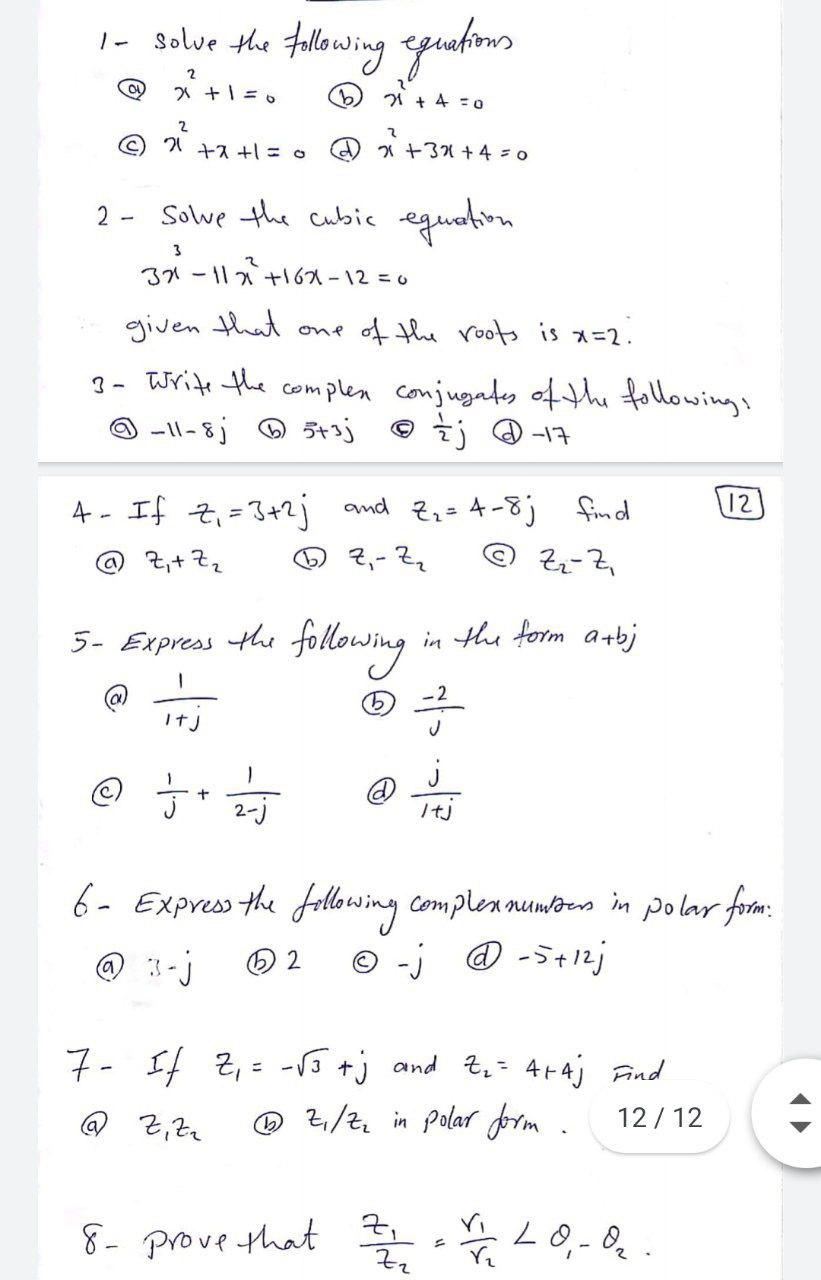 1- solve the following equations
ⓐ x² + 1 = 0 ⓑ x² + 4 = 0
ⓒ x² + x + 1 = 0 ⓓ x² + 3x + 4 = 0
2- Solve the cubic equation
3x³ - 11x² + 16x - 12 = 0
given that one of the roots is x=2.
3- Write the complex conjugates of the following:
ⓐ -11-8j ⓑ 5+3j ⓒ 1/2 j ⓓ -17
4- If z₁ = 3+2j and z₂ = 4-8j find 12
ⓐ z₁+z₂ ⓑ z₁-z₂ ⓒ z₂-z₁
5- Express the following in the form a+bj
ⓐ 1/(1+j) ⓑ -2/j
ⓒ 1/j + 1/(2-j) ⓓ j/(1+j)
6- Express the following complex numbers in polar form:
ⓐ 3-j ⓑ 2 ⓒ -j ⓓ -5+12j
7- If z₁ = -√3 + j and z₂ = 4+4j Find
ⓐ z₁z₂ ⓑ z₁/z₂ in polar form.
12 / 12
8- prove that z₁/z₂ = r₁/r₂ ∠ θ₁-θ₂.